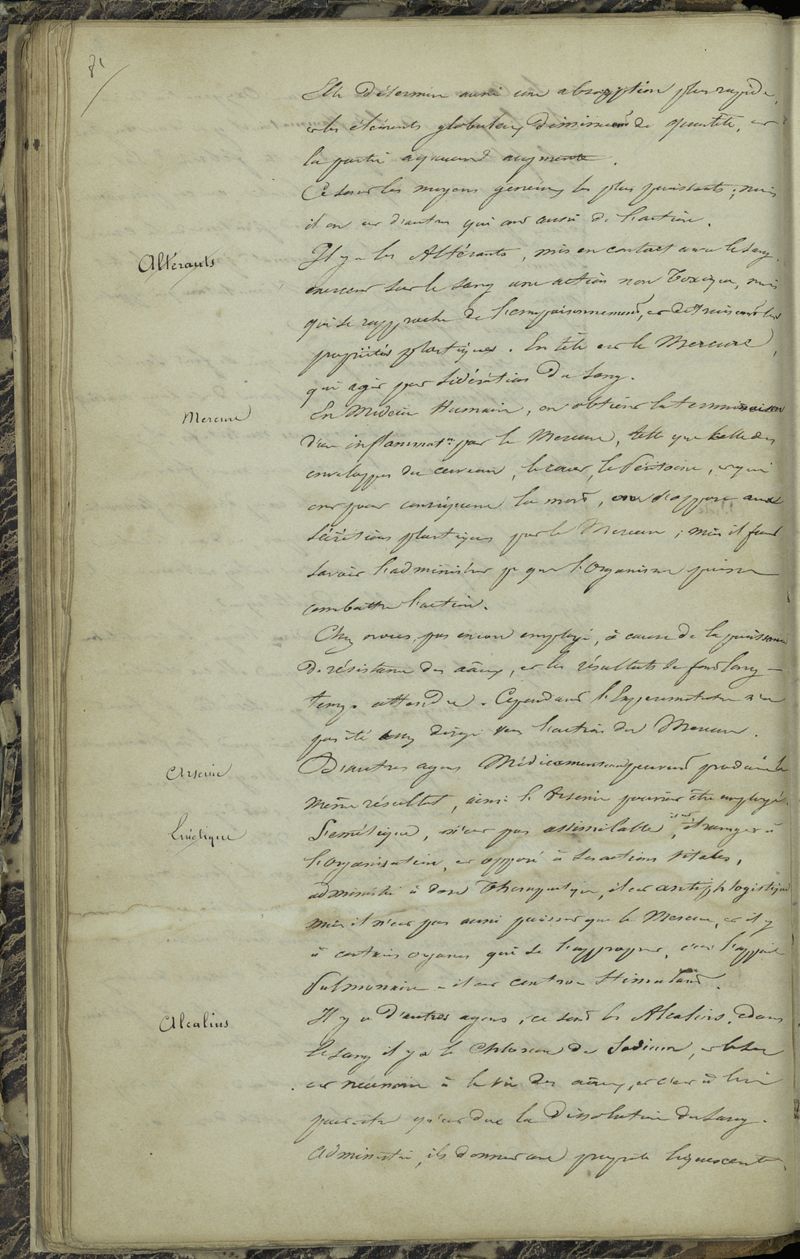 Elle Détermine aussi une absorption plus rapide,
et les éléments globuleux diminuent de quantité, et
la partie aqueuse augmente.
Ce sont les moyens généraux les plus puissants ; mais
il en est d'autres qui ont aussi de l'action.
Altérants
Il y a les Altérants, mis en contact avec le sang,
exercent sur le sang une action non Toxique, mais
qui se rapproche de l'empoisonnement, et détruisent les
propriétés plastiques. En tête est le Mercure,
qui agit par du Sang.
Mercure
En Médecine Humaine, on obtient la terminaison
d'une inflammat.n par le Mercure, telle que celle des
enveloppes du cerveau, le cœur, le Péritoine, et qui
ont pour conséquence la mort, on s'oppose aux
sécrétions plastiques par le Mercure ; mais il faut
savoir l'administrer pr que l'Organisme puisse
combattre l'action.
Chez nous, pas encore employé, à cause de la puissance
de résistance des aaux, et les résultats se font long-
temps attendre. Cependant l'Expérimentation n'a
pas été assez dirigé vers l'action du Mercure.
Arsenic
D'autres agens Médicamenteux peuvent produire le
même résultat, ainsi l'Arsenic pourrait être employé.
Emétique
L'emétique, n'est pas assimilable, étranger à
l'Organisation, et opposé à ses actions vitales,
administré à dose Thérapeutique, il est antiphlogistique
mais il n'est pas aussi puissant que le Mercure, et il y
a certains organes qui se l'approprie, c'est l'appareil
Pulmonaire - il est contro Stimulant.
Alcalins
Il y a d'autres agens, ce sont les Alcalins, dans
le sang il y a le Chlorure de Sodium, et le sel
est nécessaire à la vie des aaux, et c'est à
qu'est due la Dissolution du Sang.
Administré, ils donnent une propriété liquescente